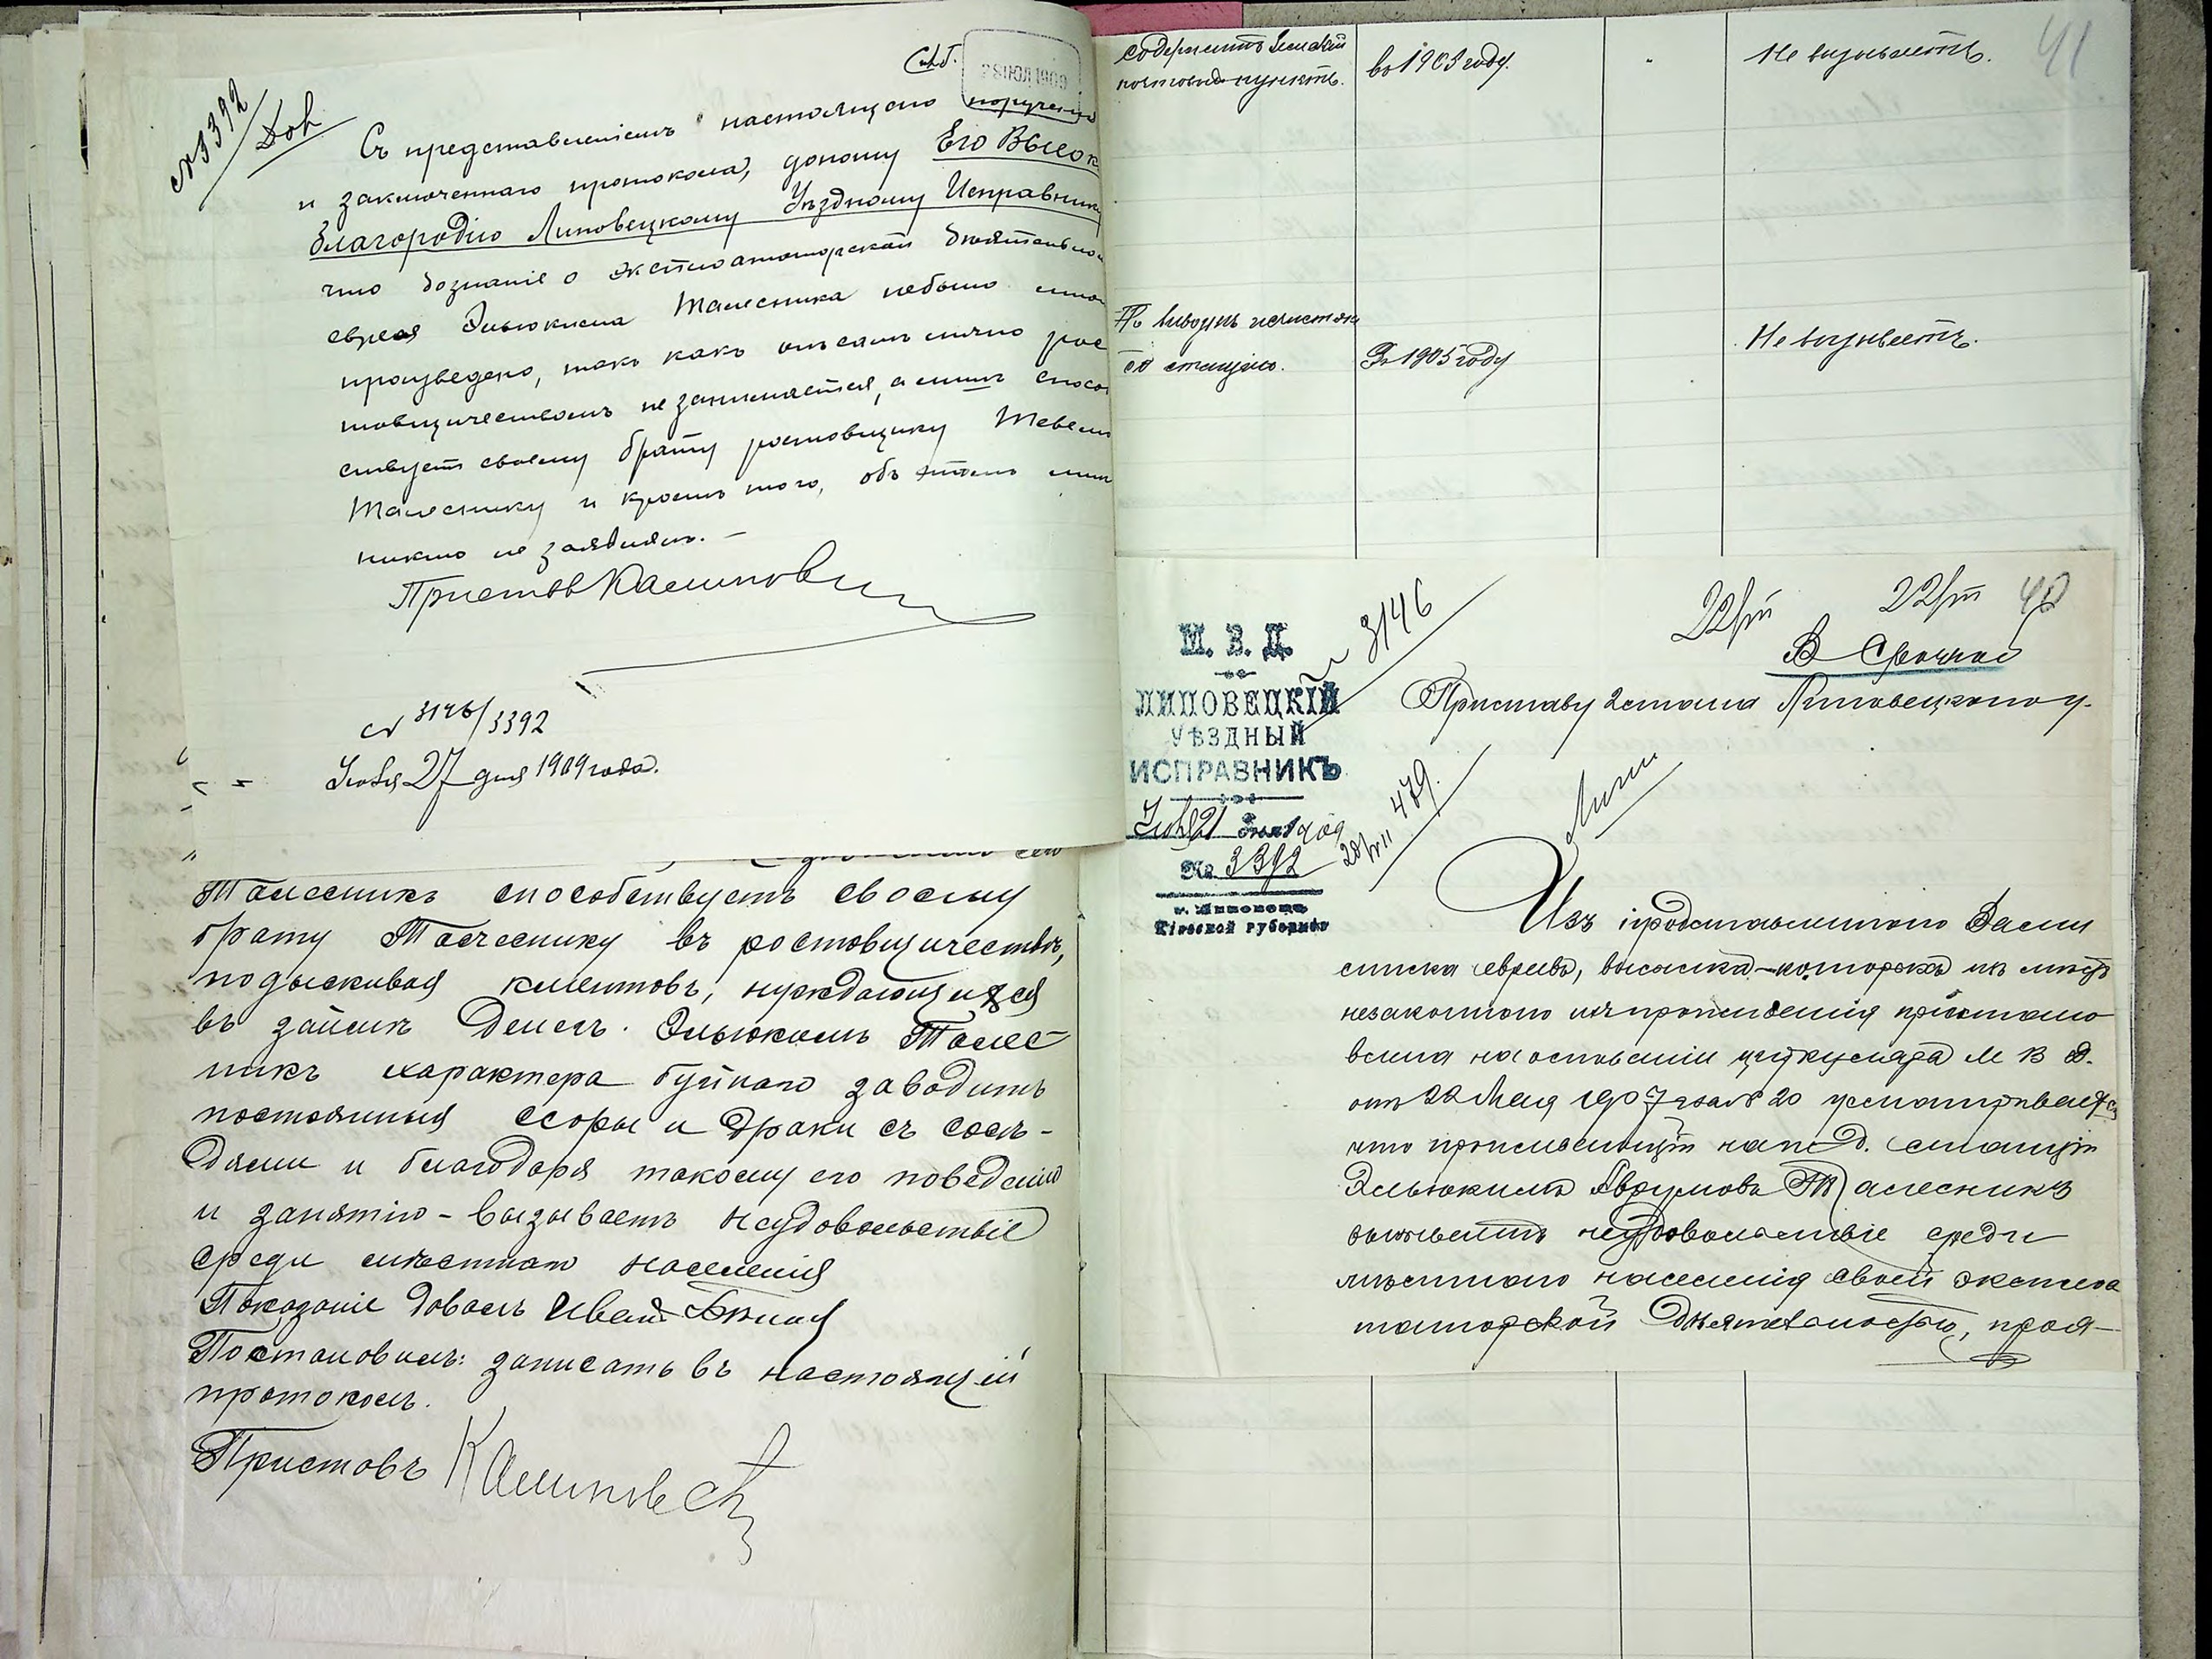 28 ІЮЛ 1909
№ 3392
Съ представленіемъ настоящаго порученія
и заключеннаго протокола, доношу Его Высоко
благородію Липовецкому Уѣздному Исправнику
что дознаніе о эксплоататорской дѣятельно
еврея Эльюкима Талесника небыло мно
произведено, такъ какъ онъ самъ лично рос
товщичествомъ не занимается, а лишь способ
ствуетъ своему брату ростовщику Тевелю
Талеснику и кромѣ того, объ этомъ мнѣ
никто не заявлялъ. —
Приставъ Калиновскі
№ 3146/3392
Іюля 27 дня 1909 года.
Талесникъ способствуетъ своему
брату Талеснику въ ростовщичествѣ,
подыскивая клиентовъ, нуждающихся
въ займѣ денегъ. Эльюкимъ Талес-
никъ характера буйнаго заводитъ
постоянныя ссоры и драки съ сосѣ-
дями и благодаря такому его поведенію
и занятію - вызываетъ неудовольствіе
среди мѣстнаго населенія
Показаніе довалъ Иван
Постановилъ: записать въ настоящій
протоколъ.
Приставъ Калиновскі
содержитъ Земскій
почтовый пунктъ.
въ 1903 году.
"
Не вызываетъ.
41
По вывозу нечистотъ
со станціи.
Въ 1905 году
Не вызываетъ.
М. В. Д.
ЛИПОВЕЦКІЙ
УѢЗДНЫЙ
ИСПРАВНИКЪ
Іюля 21 дня 1909
№ 3392
г. Липовецъ
Кіевской губерніи
№ 3146
479.
40
В Срочное
Приставу 2 стана Липовецкаго у.
Изъ представленнаго Вами
списка евреевъ, высылка - которыхъ изъ мѣстъ
незаконнаго ихъ проживенія пріостано
влена на основаніи циркуляра М В Д.
отъ 22 Мая 1907 года № 20 усматривается
что проживающій на ж. д. станціи
Эльюкимъ Аврумовъ Талесникъ
вызываетъ неудовольствіе среди
мѣстнаго населенія своей эксплоа
таторской дѣятельностью, проя-